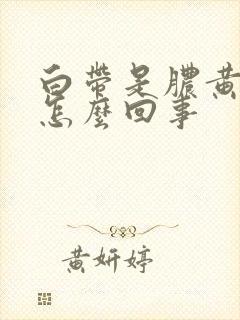 白帶是膿黃
怎麼回事
黃妍婷